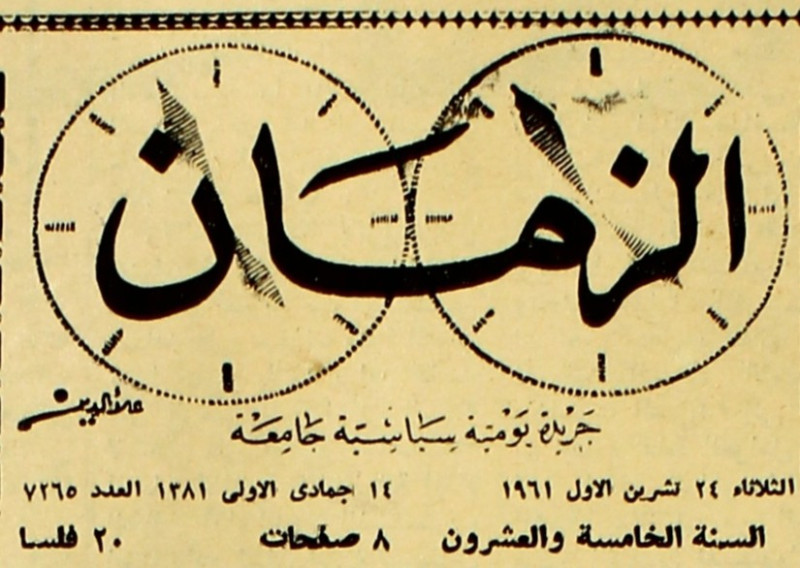 الزمان
علاءالدين
جريدة يومية سياسية جامعة
الثلاثاء ٢٤ تشرين الاول ١٩٦١ ١٤ جمادى الاولى ١٣٨١ العدد ٧٢٦٥
السنة الخامسة والعشرون ٨ صفحات ٢٠ فلسا